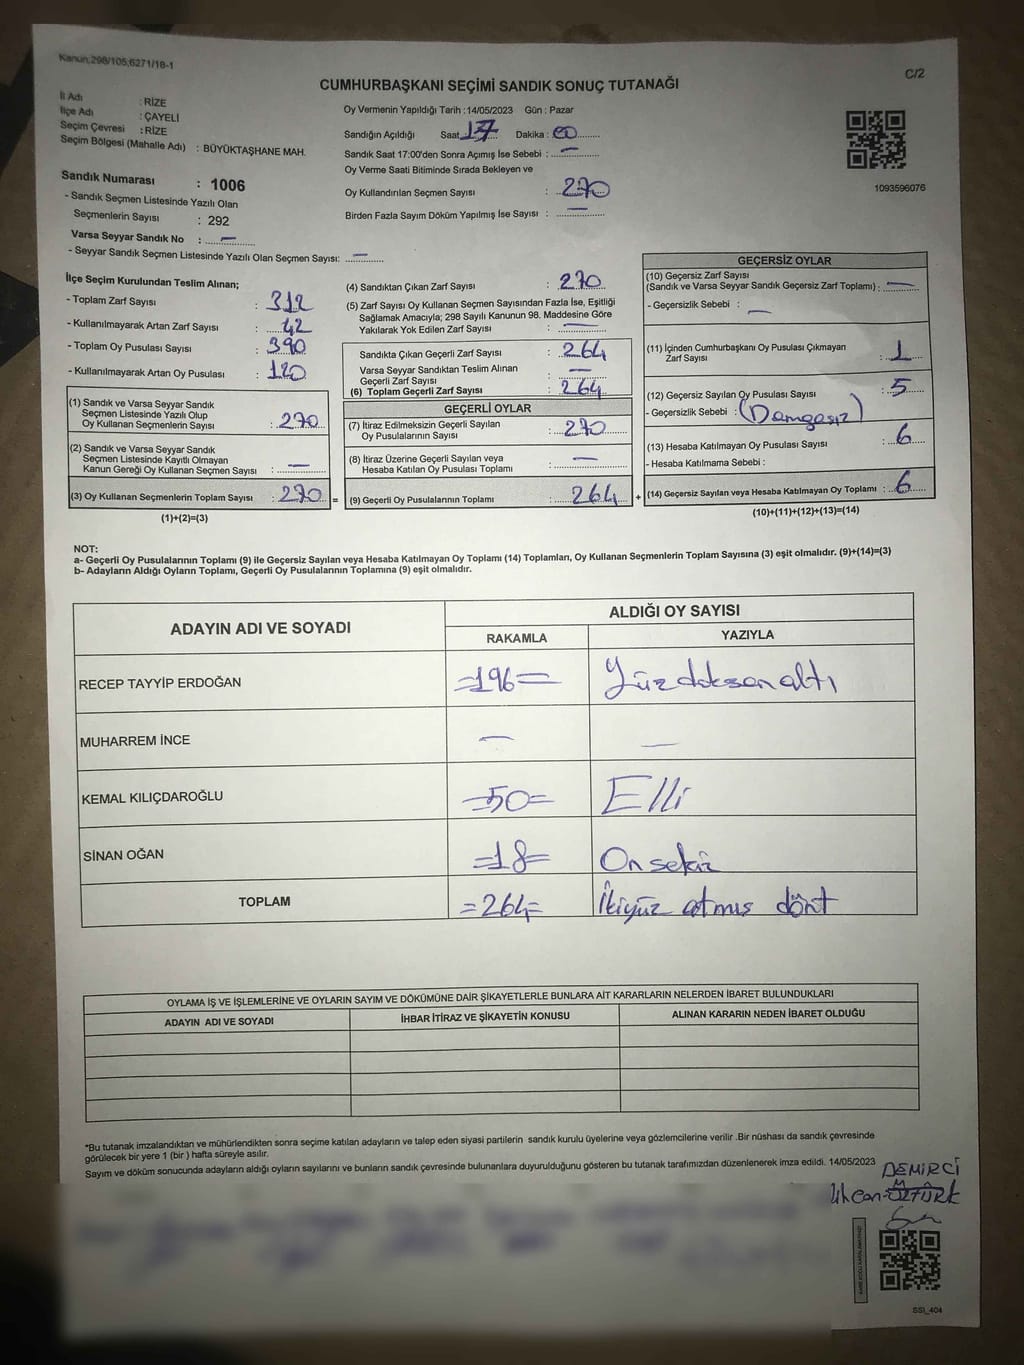 Kanun;298/105;6271/18-1
C/2
CUMHURBAŞKANI SEÇİMİ SANDIK SONUÇ TUTANAĞI
İl Adı : RİZE
İlçe Adı : ÇAYELİ
Seçim Çevresi : RİZE
Seçim Bölgesi (Mahalle Adı) : BÜYÜKTAŞHANE MAH.
Sandık Numarası : 1006
- Sandık Seçmen Listesinde Yazılı Olan
Seçmenlerin Sayısı : 292
Varsa Seyyar Sandık No : —
- Seyyar Sandık Seçmen Listesinde Yazılı Olan Seçmen Sayısı: —
Oy Vermenin Yapıldığı Tarih : 14/05/2023 Gün : Pazar
Sandığın Açıldığı Saat 17 Dakika : 00
Sandık Saat 17:00'den Sonra Açımış İse Sebebi : —
Oy Verme Saati Bitiminde Sırada Bekleyen ve
Oy Kullandırılan Seçmen Sayısı : 270
Birden Fazla Sayım Döküm Yapılmış İse Sayısı : —
1093596076
İlçe Seçim Kurulundan Teslim Alınan;
- Toplam Zarf Sayısı : 312
- Kullanılmayarak Artan Zarf Sayısı : 42
- Toplam Oy Pusulası Sayısı : 390
- Kullanılmayarak Artan Oy Pusulası : 120
(1) Sandık ve Varsa Seyyar Sandık
Seçmen Listesinde Yazılı Olup
Oy Kullanan Seçmenlerin Sayısı : 270
(2) Sandık ve Varsa Seyyar Sandık
Seçmen Listesinde Kayıtlı Olmayan
Kanun Gereği Oy Kullanan Seçmen Sayısı : —
(3) Oy Kullanan Seçmenlerin Toplam Sayısı : 270 =
(1)+(2)=(3)
(4) Sandıktan Çıkan Zarf Sayısı : 270
(5) Zarf Sayısı Oy Kullanan Seçmen Sayısından Fazla İse, Eşitliği
Sağlamak Amacıyla; 298 Sayılı Kanunun 98. Maddesine Göre
Yakılarak Yok Edilen Zarf Sayısı : —
Sandıkta Çıkan Geçerli Zarf Sayısı : 264
Varsa Seyyar Sandıktan Teslim Alınan
Geçerli Zarf Sayısı : —
(6) Toplam Geçerli Zarf Sayısı : 264
GEÇERLİ OYLAR
(7) İtiraz Edilmeksizin Geçerli Sayılan
Oy Pusulalarının Sayısı : 270
(8) İtiraz Üzerine Geçerli Sayılan veya
Hesaba Katılan Oy Pusulası Toplamı : —
(9) Geçerli Oy Pusulalarının Toplamı : 264 +
GEÇERSİZ OYLAR
(10) Geçersiz Zarf Sayısı
(Sandık ve Varsa Seyyar Sandık Geçersiz Zarf Toplamı) : —
- Geçersizlik Sebebi : —
(11) İçinden Cumhurbaşkanı Oy Pusulası Çıkmayan
Zarf Sayısı : 1
(12) Geçersiz Sayılan Oy Pusulası Sayısı : 5
- Geçersizlik Sebebi : (Damgasız)
(13) Hesaba Katılmayan Oy Pusulası Sayısı : 6
- Hesaba Katılmama Sebebi :
(14) Geçersiz Sayılan veya Hesaba Katılmayan Oy Toplamı : 6
(10)+(11)+(12)+(13)=(14)
NOT:
a- Geçerli Oy Pusulalarının Toplamı (9) ile Geçersiz Sayılan veya Hesaba Katılmayan Oy Toplamı (14) Toplamları, Oy Kullanan Seçmenlerin Toplam Sayısına (3) eşit olmalıdır. (9)+(14)=(3)
b- Adayların Aldığı Oyların Toplamı, Geçerli Oy Pusulalarının Toplamına (9) eşit olmalıdır.
ADAYIN ADI VE SOYADI
ALDIĞI OY SAYISI
RAKAMLA YAZIYLA
RECEP TAYYİP ERDOĞAN =196= Yüz doksan altı
MUHARREM İNCE — —
KEMAL KILIÇDAROĞLU =50= Elli
SİNAN OĞAN =18= On sekiz
TOPLAM =264= İkiyüz atmış dört
OYLAMA İŞ VE İŞLEMLERİNE VE OYLARIN SAYIM VE DÖKÜMÜNE DAİR ŞİKAYETLERLE BUNLARA AİT KARARLARIN NELERDEN İBARET BULUNDUKLARI
ADAYIN ADI VE SOYADI İHBAR İTİRAZ VE ŞİKAYETİN KONUSU ALINAN KARARIN NEDEN İBARET OLDUĞU
*Bu tutanak imzalandıktan ve mühürlendikten sonra seçime katılan adayların ve talep eden siyasi partilerin sandık kurulu üyelerine veya gözlemcilerine verilir .Bir nüshası da sandık çevresinde
görülecek bir yere 1 (bir ) hafta süreyle asılır.
Sayım ve döküm sonucunda adayların aldığı oyların sayılarını ve bunların sandık çevresinde bulunanlara duyurulduğunu gösteren bu tutanak tarafımızdan düzenlenerek imza edildi. 14/05/2023
DEMİRCİ
ÖZTÜRK
SSI_404